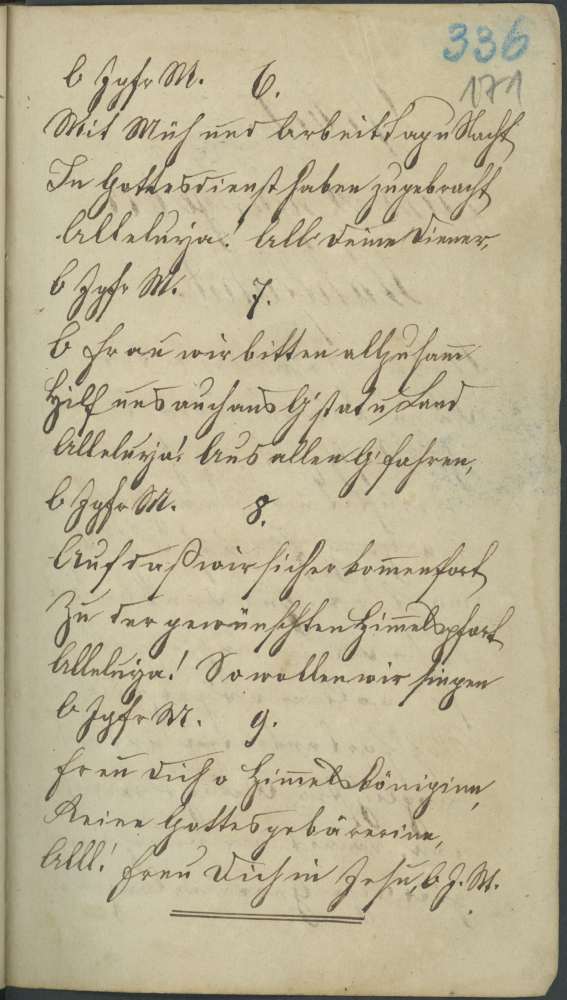 336
171
O Jgfr M. 6.
Mit Müh und Arbeit Tag u Nacht
In Gottesdienst haben zugebracht
Alleluja! All deine Diener,
O Jgfr M. 7.
O Frau wir bitten allzusam̅
Hilf uns auch aus G'stat u Land
Alleluja! Aus allen G'fahren,
O Jgfr M. 8.
Auf daß wir sicher kom̅en fort
Zu der gewünschten Him̅elspfort
Alleluja! So wollen wir singen
O Jgfr M. 9.
Freu dich o Him̅elsköniginn,
Reine Gottesgebärerinn,
All! Freu Dich in Jesu, O J. M.